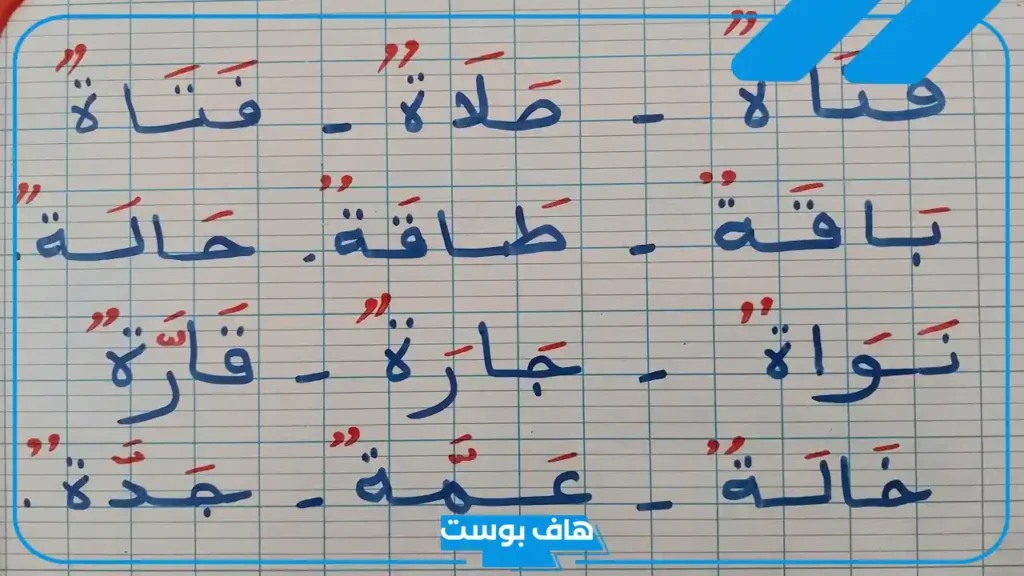 - صَلَاةٌ - فَتَاةٌ
بَاقَةٌ - طَاقَةٌ . حَالَةٌ.
نَوَاةٌ - جَارَةٌ - قَارَّةٌ
خَالَةٌ - عَمَّةٌ - جَدَّةٌ.
هاف بوست